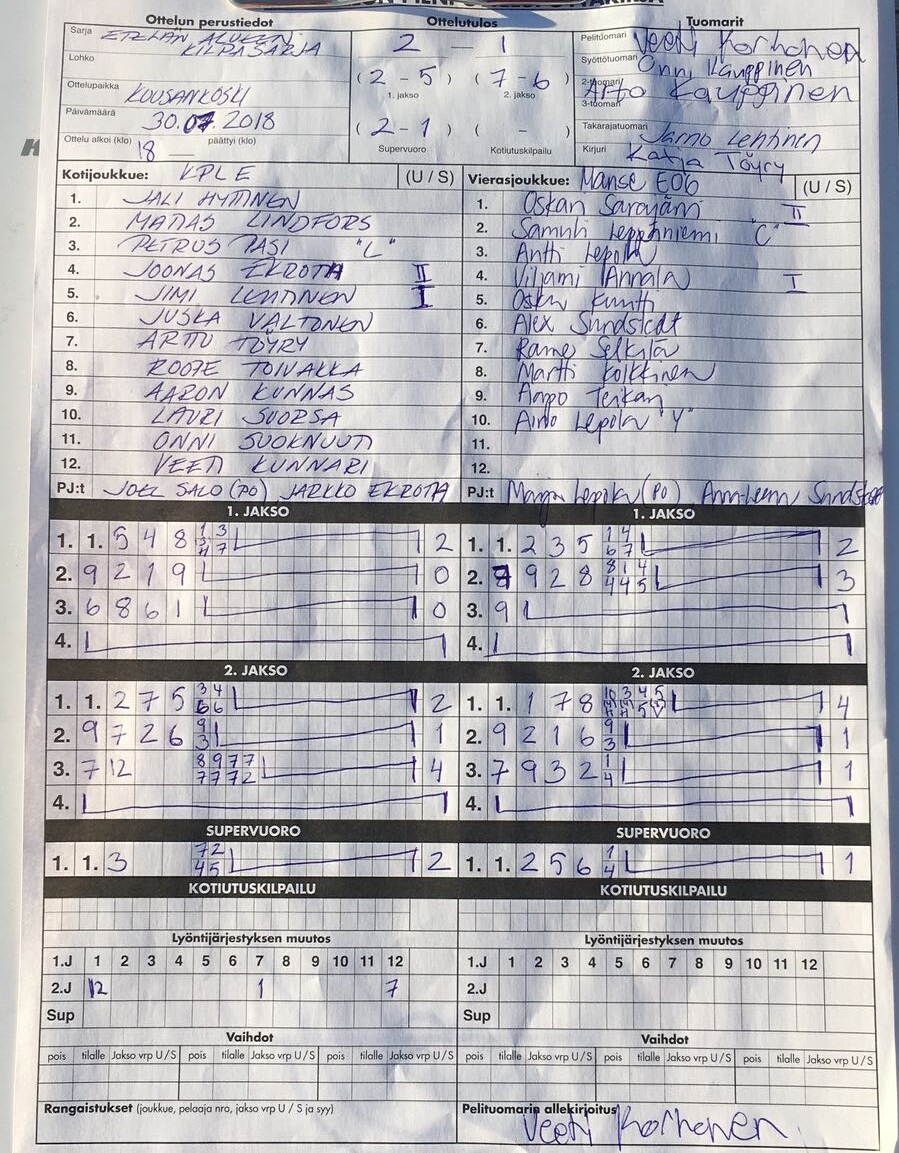 Ottelun perustiedot
Ottelutulos
Tuomarit
Sarja ETELÄN ALUEEN
KILPASARJA
Lohko
Ottelupaikka KOUSANKOSKI
Päivämäärä 30.07.2018
Ottelu alkoi (klo) 18 päättyi (klo)
2 - 1
(2 - 5) (7 - 6)
1. jakso 2. jakso
(2 - 1) ( - )
Supervuoro Kotiutuskilpailu
Pelituomari Veeti Korhonen
Syöttötuomari Onni Kauppinen
2-tuomari/ Arto Kauppinen
3-tuomari
Takarajatuomari Jarno Lehtinen
Kirjuri Katja Töyry
Kotijoukkue: KPLE (U / S)
1. JALI HYTINEN
2. MATIAS LINDFORS
3. PETRUS PASI "L"
4. JOONAS EKROTH II
5. JIMI LEHTINEN I
6. JUSKA VALTONEN
7. ARTTU TÖYRY
8. ROOPE TOIVAKKA
9. AARON KUNNAS
10. LAURI SUORSA
11. ONNI SUOKNUUTI
12. VEETI KUNNARI
PJ:t JOEL SALO (PO) JARKKO EKROTH
Vierasjoukkue: Manse E06 (U / S)
1. Oskari Sarajärvi II
2. Samuli Leppäniemi "C"
3. Antti Lepola
4. Viljami Annala I
5. Osku Kuntti
6. Alex Sundstedt
7. Rame Selkilä
8. Martti Kolkkinen
9. Aapo Teikari
10. Aino Lepola "Y"
11.
12.
PJ:t Marja Lepola (PO) Ann-Leena Sundstedt
1. JAKSO
1. 1. 5 4 8 2
2. 9 2 1 9 0
3. 6 8 6 1 0
4.
1. JAKSO
1. 1. 2 3 5 1 4 2
6 7
2. 7 9 2 8 8 1 4 3
4 4 5
3. 9
4.
2. JAKSO
1. 1. 2 7 5 3 4 2
6 6
2. 9 7 2 6 9 1
3
3. 7 12 8 9 7 7 4
7 7 7 2
4.
2. JAKSO
1. 1. 1 7 8 10 3 4 5 4
2. 9 2 1 6 9 1
3
3. 7 9 3 2 1 1
4
4.
SUPERVUORO
1. 1. 3 7 2 2
4 5
SUPERVUORO
1. 1. 2 5 6 1 1
4
KOTIUTUSKILPAILU
KOTIUTUSKILPAILU
Lyöntijärjestyksen muutos
1.J 1 2 3 4 5 6 7 8 9 10 11 12
2.J 12 1 7
Sup
Lyöntijärjestyksen muutos
1.J 1 2 3 4 5 6 7 8 9 10 11 12
2.J
Sup
Vaihdot
pois tilalle Jakso vrp U / S pois tilalle Jakso vrp U / S pois tilalle Jakso vrp U / S
Vaihdot
pois tilalle Jakso vrp U / S pois tilalle Jakso vrp U / S pois tilalle Jakso vrp U / S
Rangaistukset (joukkue, pelaaja nro, jakso vrp U / S ja syy)
Pelituomarin allekirjoitus
Veeti Korhonen